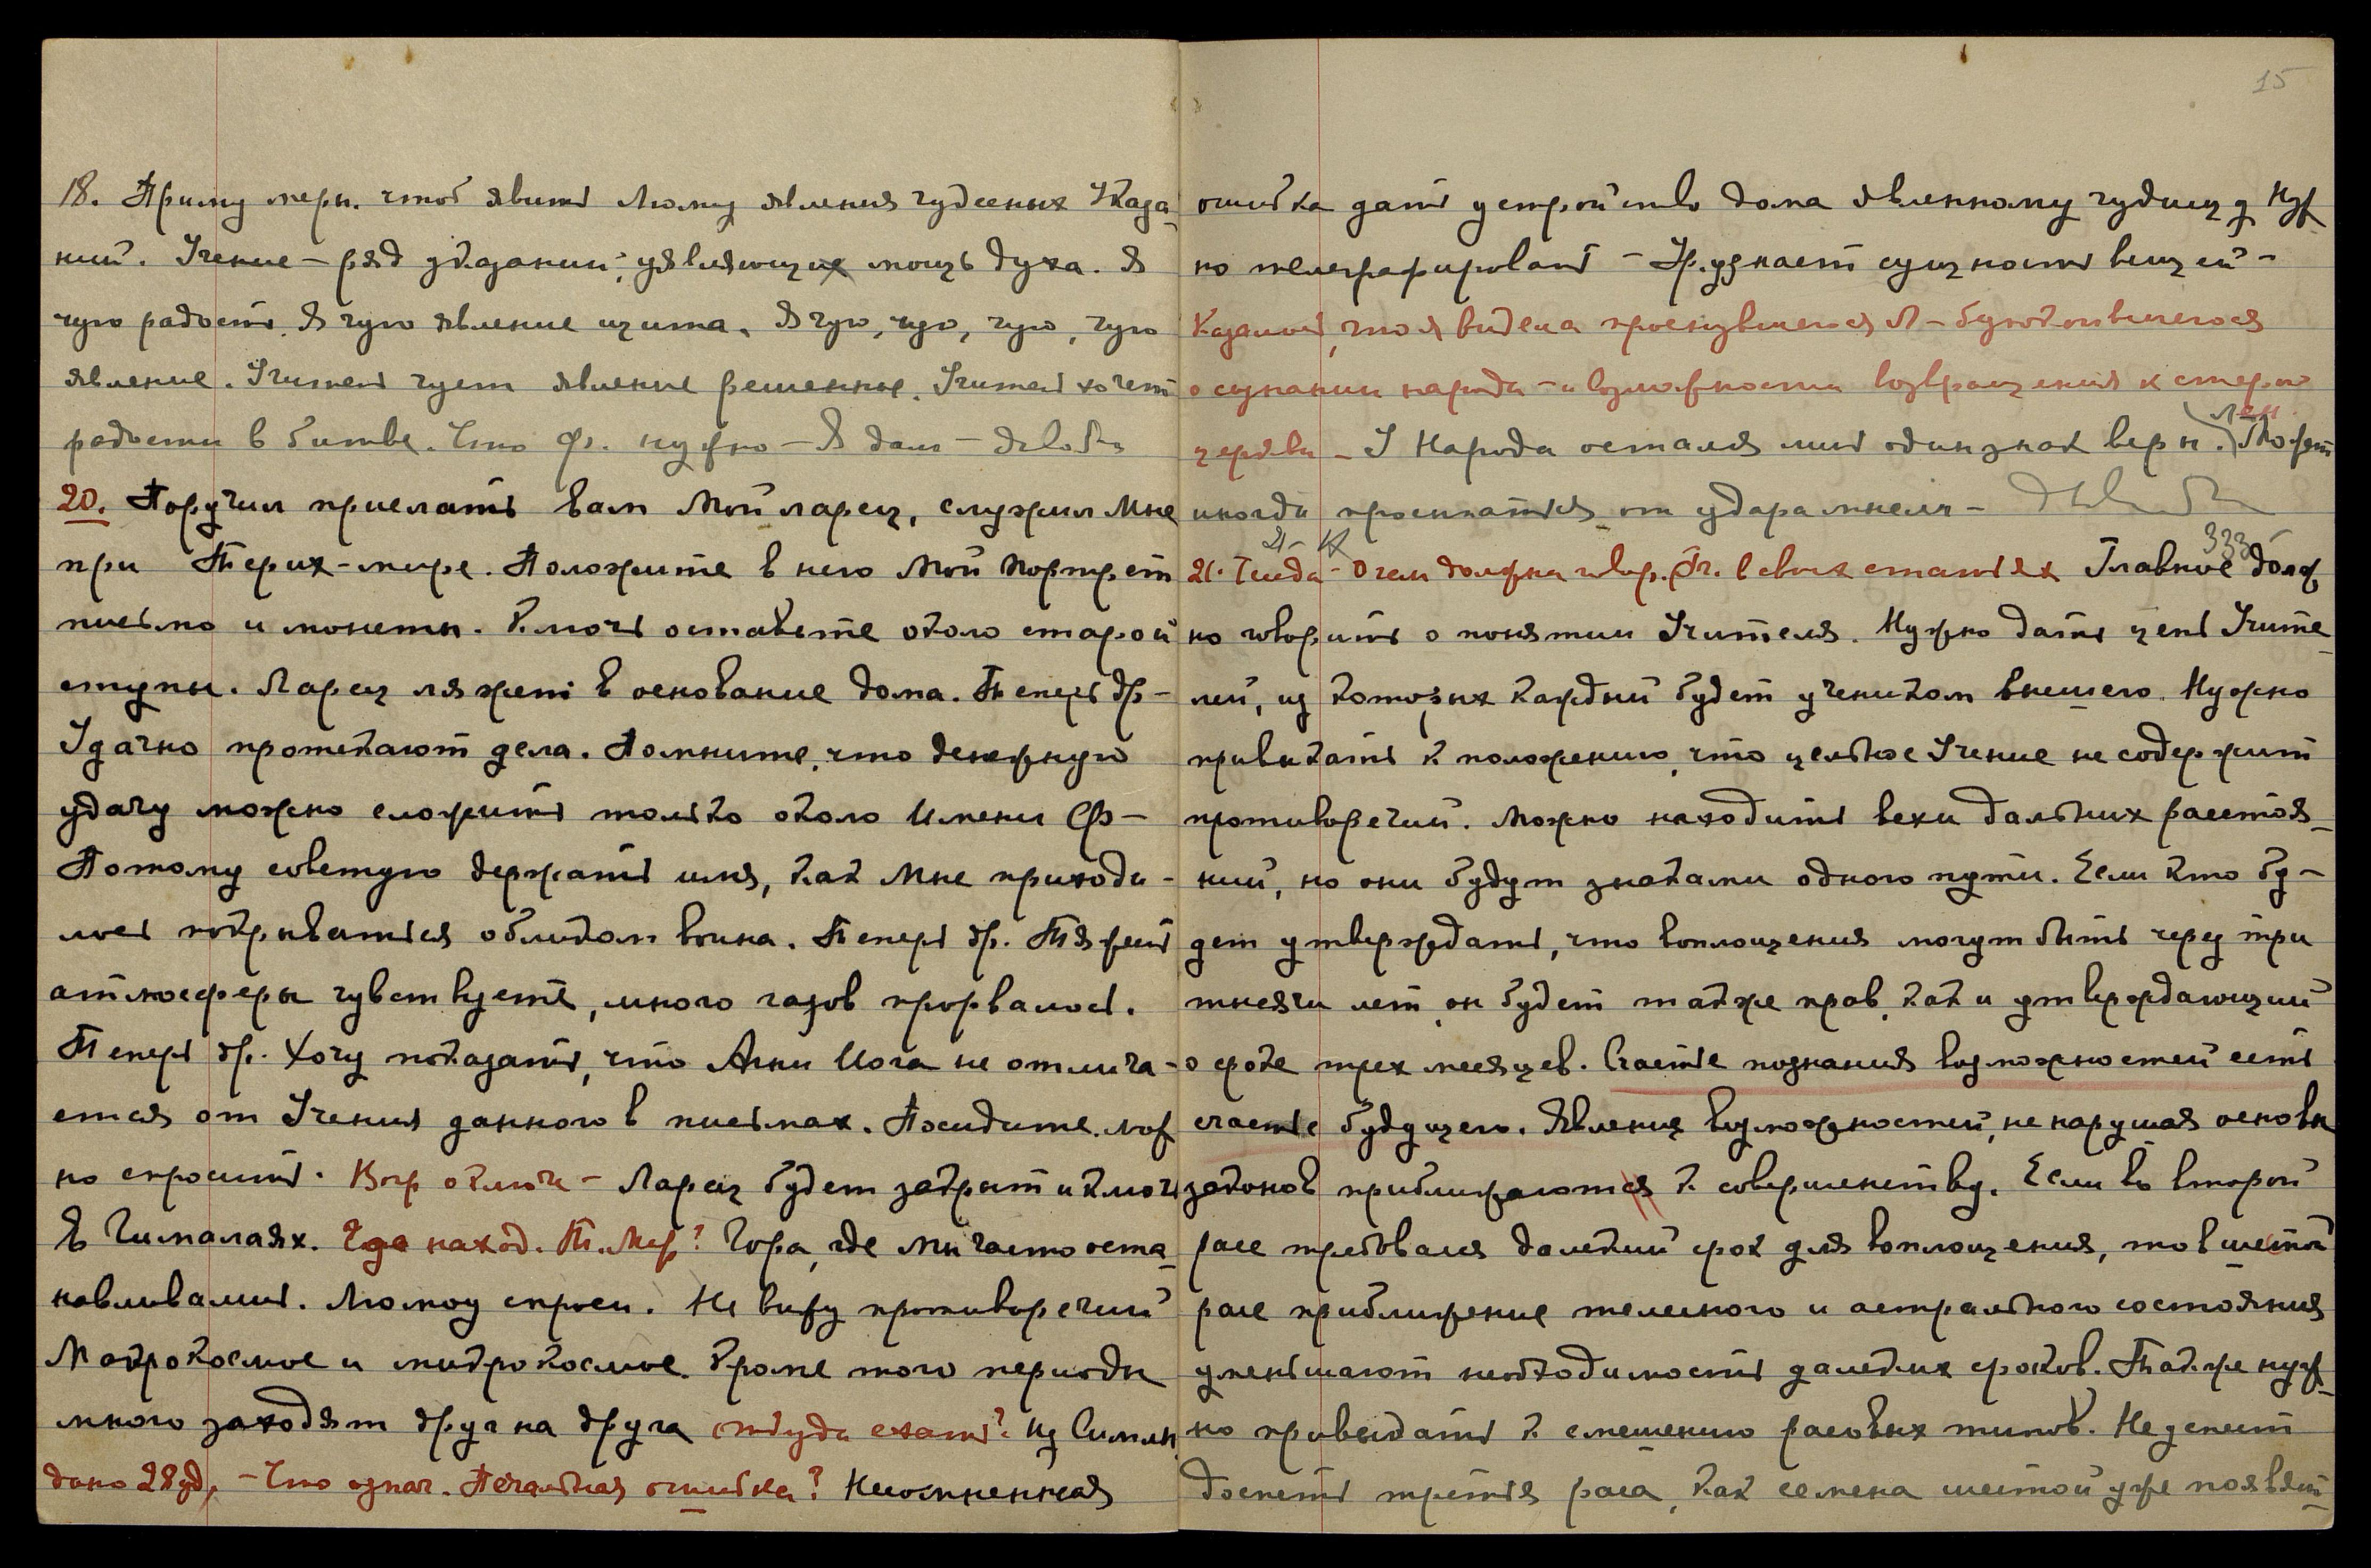 18. Приму меры. чтоб явить Люмоу явления чудесных Указа-
ний. Учение – ряд указаний, уявляющих мощь духа. Я
чую радость. Я чую явление щита. Я чую, чую, чую, чую
явление. Учитель чует явление решенное. Учитель хочет
радости в битве. Что Ф. нужно – Я дам – довольно
20. Поручил прислать вам Мой ларец, служил Мне
при Терих-мире. Положите в него Мой портрет
письмо и монеты. Ключ оставьте около старой
ступы. Ларец ляжет в основание дома. Теперь др –
Удачно протекают дела. Помните, что денежную
удачу можно сложить только около Имени Ф –
Потому советую держать имя, как Мне приходи-
лось покрываться обликом воина. Теперь др. Тяжесть
атмосферы чувствуете, много газов прорвалось.
Теперь др. Хочу показать, что Агни Йога не отлича-
ется от Учения данного в письмах. Посидите. мож
но спросить. Вопр о ключе – Ларец будет закрыт и ключ
в Гималаях. Где наход. Т. Мир? Гора, где мы часто оста-
навливались. Люмоу спроси. Не вижу противоречий
Макрокосмос и микрокосмос. Кроме того периоды
много заходят друг на друга откуда ехать? Из Симлы
дано 28 – Что означ. Печальная ошибка? Несомненная
15
ошибка дать устройство дома явленному чудищу Нуж
но телеграфировать – Ур. узнает сущность вещей –
Казалось, что я видела проснувшегося Л – 
о сознании народа – и возможности возвращения к старой
церкви – У Народа остался лишь один знак веры. Лен. Может
иногда просыпаться от удара мысли – довольно
21 – IX
333
21. Сиеда – О чем должна говор. Фл. в своих статьях Главное долж
но говорить о понятии Учителя. Нужно дать цепь Учите-
лей, из которых каждый будет учеником высшего. Нужно
привыкать к положению, что цельное Учение не содержит
противоречий. Можно находить вехи дальних расстоя-
ний, но они будут знаками одного пути. Если кто бу-
дет утверждать, что воплощения могут быть через три
тысячи лет, он будет также прав, как и утверждающий
о сроке трех месяцев. Счастье познания возможностей есть
счастье будущего. Явления возможностей, не нарушая основы
законов приближаются к совершенству. Если во второй
расе требовался далекий срок для воплощения, то в шестой
расе приближение телесного и астрального состояния
уменьшают необходимость далеких сроков. Также нуж-
но привыкать к смешению расовых типов. Не успеет
доспеть третья раса, как семена шестой уже появят-